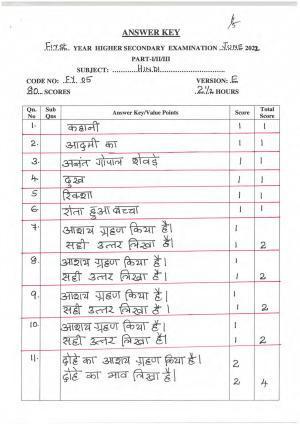 ANSWER KEY
First YEAR HIGHER SECONDARY EXAMINATION June 2022
PART-I/II/III
SUBJECT: HINDI
CODE NO: FY 05 VERSION: E
80 SCORES 2½ HOURS
Qn. No Sub Qns Answer Key/Value Points Score Total Score
1. कहानी 1 1
2. आदमी का 1 1
3. अनंत गोपाल शेवड़े 1 1
4. दुख 1 1
5 रिक्शा 1 1
6. रोता हुआ बच्चा 1 1
7. आशय ग्रहण किया है। 1
सही उत्तर लिखा है। 1 2
8. आशय ग्रहण किया है। 1
सही उत्तर लिखा है। 1 2
9. आशय ग्रहण किया है। 1
सही उत्तर लिखा है। 1 2
10. आशय ग्रहण किया है। 1
सही उत्तर लिखा है। 1 2
11. दोहे का आशय ग्रहण किया है। 2
दोहे का भाव लिखा है। 2 4